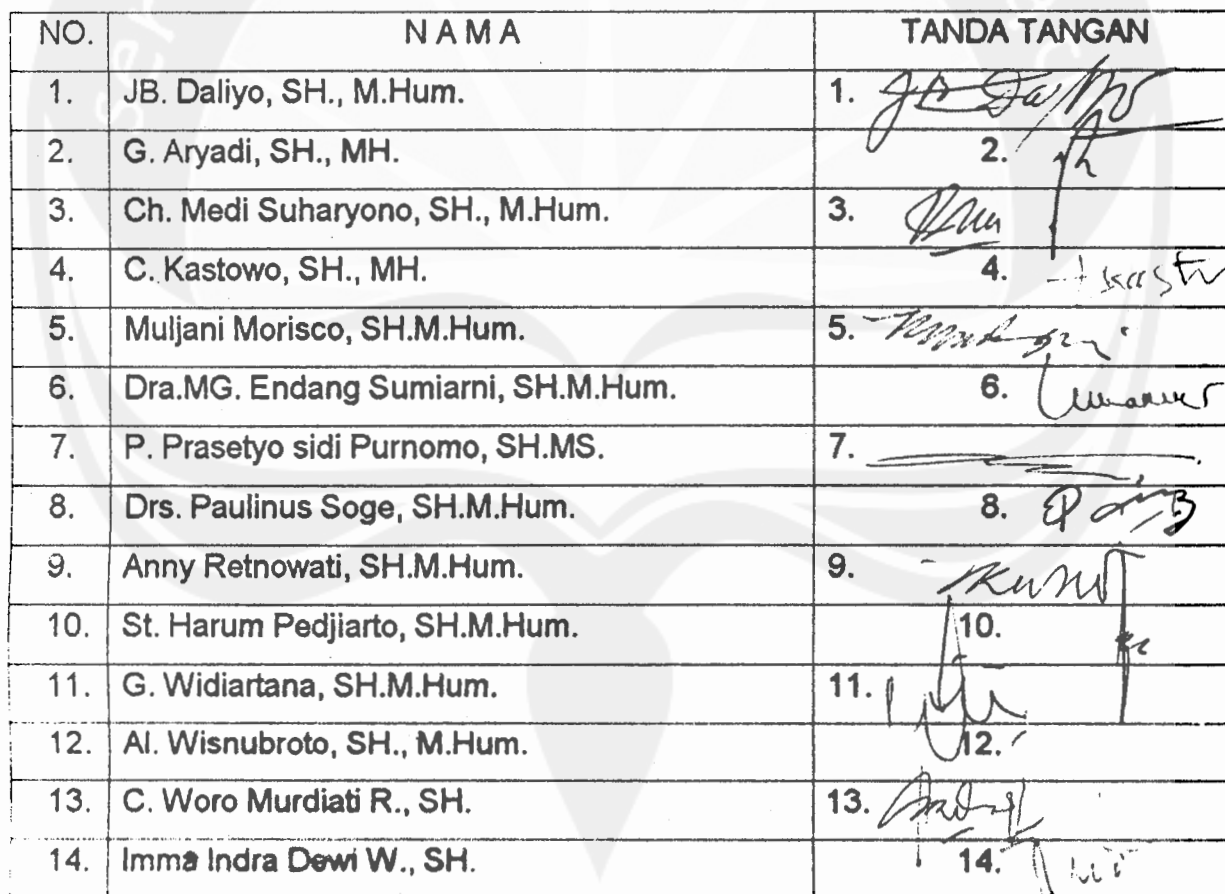 NO. N A M A TANDA TANGAN
1. JB. Daliyo, SH., M.Hum. 1.
2. G. Aryadi, SH., MH. 2.
3. Ch. Medi Suharyono, SH., M.Hum. 3.
4. C. Kastowo, SH., MH. 4.
5. Muljani Morisco, SH.M.Hum. 5.
6. Dra.MG. Endang Sumiarni, SH.M.Hum. 6.
7. P. Prasetyo sidi Purnomo, SH.MS. 7.
8. Drs. Paulinus Soge, SH.M.Hum. 8.
9. Anny Retnowati, SH.M.Hum. 9.
10. St. Harum Pedjiarto, SH.M.Hum. 10.
11. G. Widiartana, SH.M.Hum. 11.
12. Al. Wisnubroto, SH., M.Hum. 12.
13. C. Woro Murdiati R., SH. 13.
14. Imma Indra Dewi W., SH. 14.